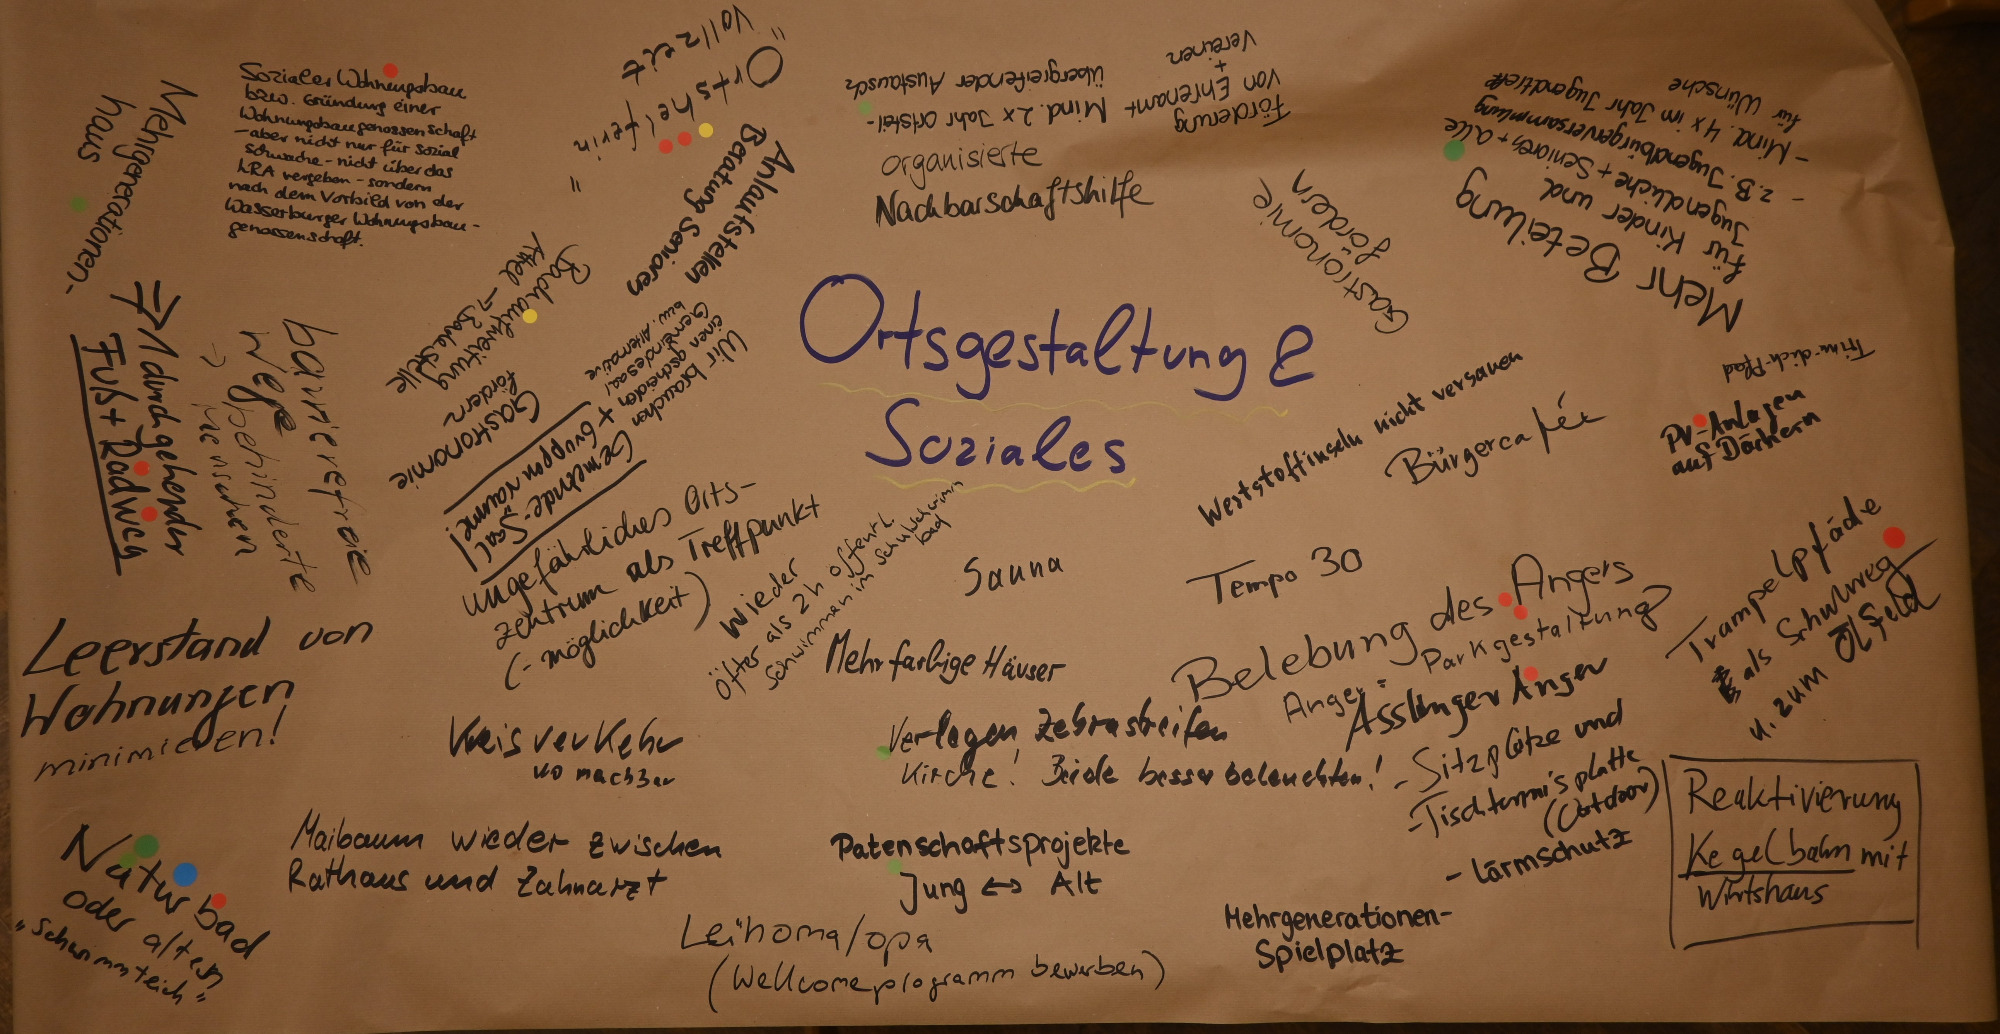 Ortsgestaltung &
Soziales
Mehrgenerationen-
haus
Sozialer Wohnungsbau
bzw. Gründung einer
Wohnungsbaugenossenschaft
– aber nicht nur für sozial
schwache – nicht über das
LRA vergeben – sondern
nach dem Vorbild von der
Wasserburger Wohnungsbau-
genossenschaft.
"Ortshelferin"
Vollzeit
Anlaufstellen
Beratung Senioren
Förderung
von Ehrenamt
+
Vereinen
Mind. 2x Jahr ortsteil-
übergreifender Austausch
organisierte
Nachbarschaftshilfe
Gastronomie
fördern
Mehr Beteilung
für Kinder und
Jugendliche + Senioren + alle
- z.B. Jugendbürgerversammlung
- Mind. 4x im Jahr Jugendtreff
für Wünsche
⇒ 1 durchgehender
Fuß + Radweg
barrierefreie
Wege
→ behinderte
Menschen
Bachaufweitung
Attel → Badestelle
Gastronomie
fördern
Wir brauchen
einen gscheiden
Gemeindesaal
bzw. Alternative
Gemeinde-Saal
+ Gruppenräume!
ungefährliches Orts-
zentrum als Treffpunkt
(- möglichkeit)
Wieder
öfter als 2h öffentl.
Schwimmen im Schulschwimm
bad
Sauna
Wertstoffinseln nicht versauen
Bürgercafée
Trimm-dich-Pfad
PV-Anlagen
auf Dächern
Tempo 30
Trampelpfade
als Schulweg
u. zum Ölfeld
Leerstand von
Wohnungen
minimieren!
Mehr farbige Häuser
Belebung des Angers
Anger = Parkgestaltung?
Asslinger Anger
- Sitzplätze und
- Tischtennisplatte
(Outdoor)
- Lärmschutz
Kreisverkehr
wo machbar
Verlegen Zebrastreifen
Kirche! Beide besser beleuchten!
Reaktivierung
Kegelbahn mit
Wirtshaus
Naturbad
oder altern
"Schwimmteich"
Maibaum wieder zwischen
Rathaus und Zahnarzt
Patenschaftsprojekte
Jung ↔ Alt
Leihoma/opa
(Wellcomeprogramm bewerben)
Mehrgenerationen-
Spielplatz